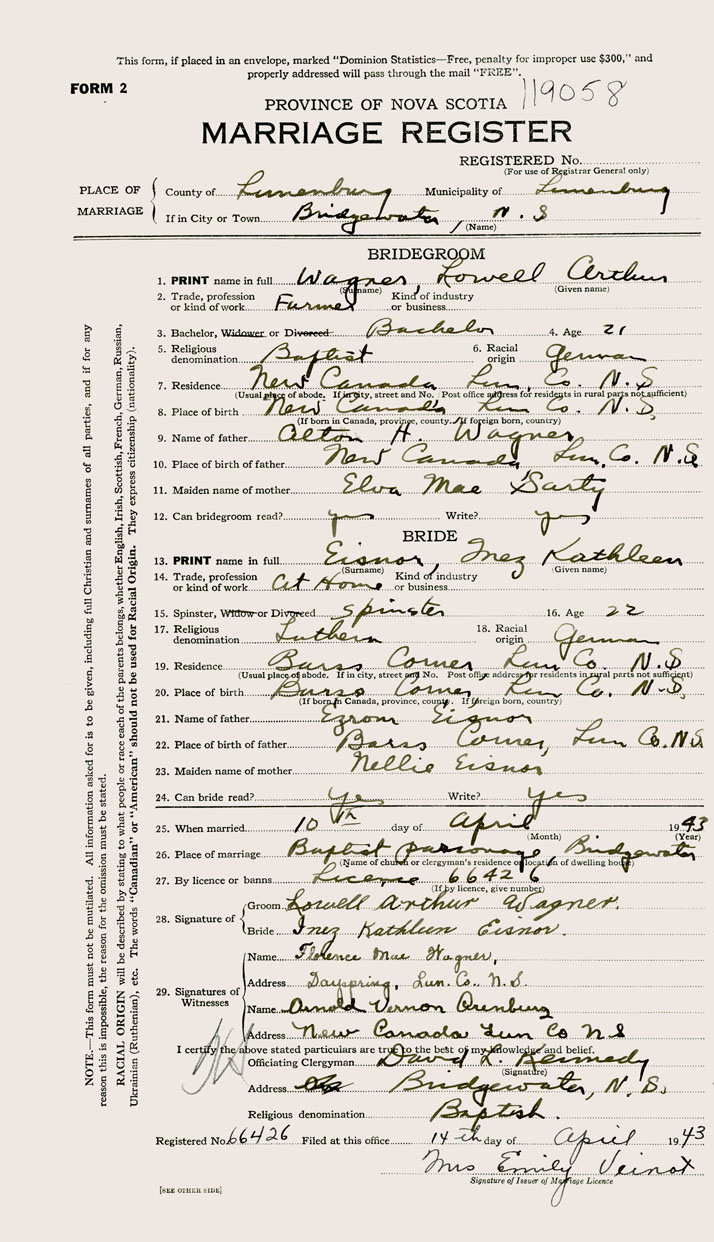 This form, if placed in an envelope, marked "Dominion Statistics—Free, penalty for improper use $300," and
properly addressed will pass through the mail "FREE".
FORM 2
119058
PROVINCE OF NOVA SCOTIA
MARRIAGE REGISTER
REGISTERED No.
(For use of Registrar General only)
PLACE OF MARRIAGE
County of Lunenburg Municipality of Lunenburg
If in City or Town Bridgewater, N.S
(Name)
BRIDEGROOM
1. PRINT name in full Wagner, Lowell Arthur
(Surname) (Given name)
2. Trade, profession or kind of work Farmer Kind of industry or business
3. Bachelor, Widower or Divorced Bachelor 4. Age 21
5. Religious denomination Baptist 6. Racial origin German
7. Residence New Canada Lun, Co. N.S
(Usual place of abode. If in city, street and No. Post office address for residents in rural parts not sufficient)
8. Place of birth New Canada Lun Co. N.S,
(If born in Canada, province, county. If foreign born, country)
9. Name of father Alton H. Wagner
10. Place of birth of father New Canada Lun, Co. N.S
11. Maiden name of mother Elva Mae Sarty
12. Can bridegroom read? yes Write? yes
BRIDE
13. PRINT name in full Eisnor, Inez Kathleen
(Surname) (Given name)
14. Trade, profession or kind of work At Home Kind of industry or business
15. Spinster, Widow or Divorced Spinster 16. Age 22
17. Religious denomination Luthern 18. Racial origin German
19. Residence Barss Corner Lun Co. N.S
(Usual place of abode. If in city, street and No. Post office address for residents in rural parts not sufficient)
20. Place of birth Barss Corner, Lun Co. N.S,
(If born in Canada, province, county. If foreign born, country)
21. Name of father Ezrom Eisnor
22. Place of birth of father Barss Corner, Lun Co. N.S
23. Maiden name of mother Nellie Eisnor
24. Can bride read? yes Write? yes
25. When married 10th day of April 1943
(Month) (Year)
26. Place of marriage Baptist parsonage, Bridgewater
(Name of church or clergyman's residence or location of dwelling house)
27. By licence or banns License 66426
(If by licence, give number)
28. Signature of
Groom Lowell Arthur Wagner.
Bride Inez Kathleen Eisnor.
29. Signatures of Witnesses
Name Florence Mae Wagner,
Address Dayspring, Lun. Co. N.S.
Name Arnold Vernon Arenburg
Address New Canada Lun Co N S
I certify the above stated particulars are true to the best of my knowledge and belief.
Officiating Clergyman David L. Kennedy
(Signature)
Address Bridgewater, N.S.
Religious denomination Baptist.
Registered No. 66426 Filed at this office 14th day of April 1943
Mrs Emily Veinot
Signature of Issuer of Marriage Licence
[SEE OTHER SIDE]
NOTE.—This form must not be mutilated. All information asked for is to be given, including full Christian and surnames of all parties, and if for any
reason this is impossible, the reason for the omission must be stated.
RACIAL ORIGIN will be described by stating to what people or race each of the parents belongs, whether English, Irish, Scottish, French, German, Russian,
Ukrainian (Ruthenian), etc. The words "Canadian" or "American" should not be used for Racial Origin. They express citizenship (nationality).